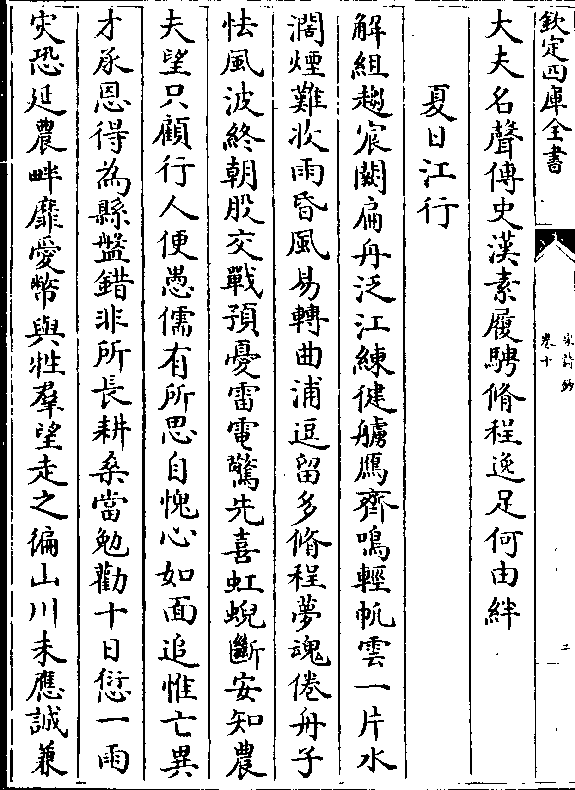 欽定四庫全書
宋詩鈔
卷十
二
大夫名聲傳史漢素履騁脩程逸足何由絆
夏日江行
解組趨宸闕扁舟泛江練健艣鴈齊鳴輕帆雲一片水
濶煙難收雨昏風易轉曲浦逗留多脩程夢魂倦舟子
怯風波終朝股交戰預憂雷電驚先喜虹蜺斷安知農
夫望只顧行人便愚儒有所思自愧心如面追惟亡異
才承恩得為縣盤錯非所長耕桑當勉勸十日愆一雨
灾恐延農畔靡愛幣與牲羣望走之徧山川未應誠兼